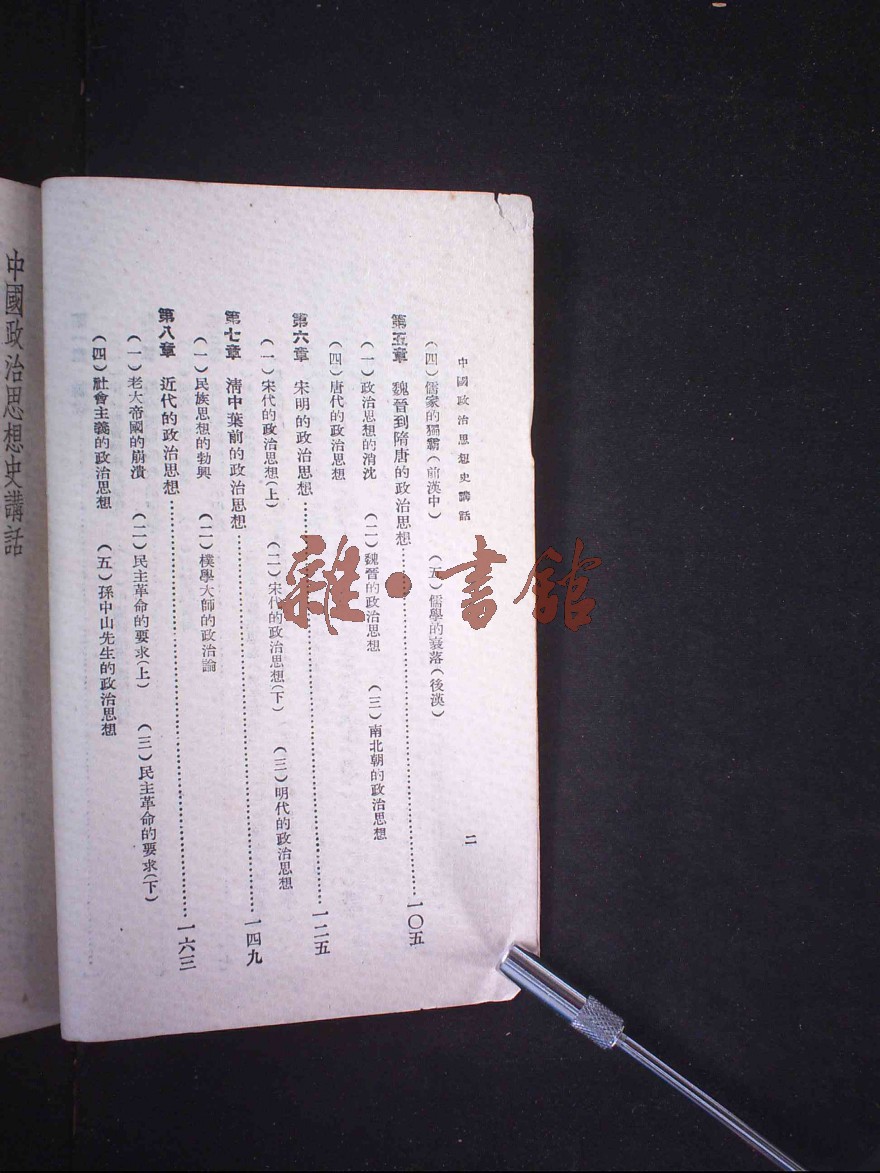 中國政治思想史講話
二
（四）儒家的獨霸（前漢中） （五）儒學的衰落（後漢）
第五章 魏晉到隋唐的政治思想……一〇五
（一）政治思想的消沈 （二）魏晉的政治思想 （三）南北朝的政治思想
（四）唐代的政治思想
第六章 宋明的政治思想……一二五
（一）宋代的政治思想（上） （二）宋代的政治思想（下） （三）明代的政治思想
第七章 清中葉前的政治思想……一四九
（一）民族思想的勃興 （二）樸學大師的政治論
第八章 近代的政治思想……一六三
（一）老大帝國的崩潰 （二）民主革命的要求（上） （三）民主革命的要求（下）
（四）社會主義的政治思想 （五）孫中山先生的政治思想
中國政治思想史講話
雜·書館